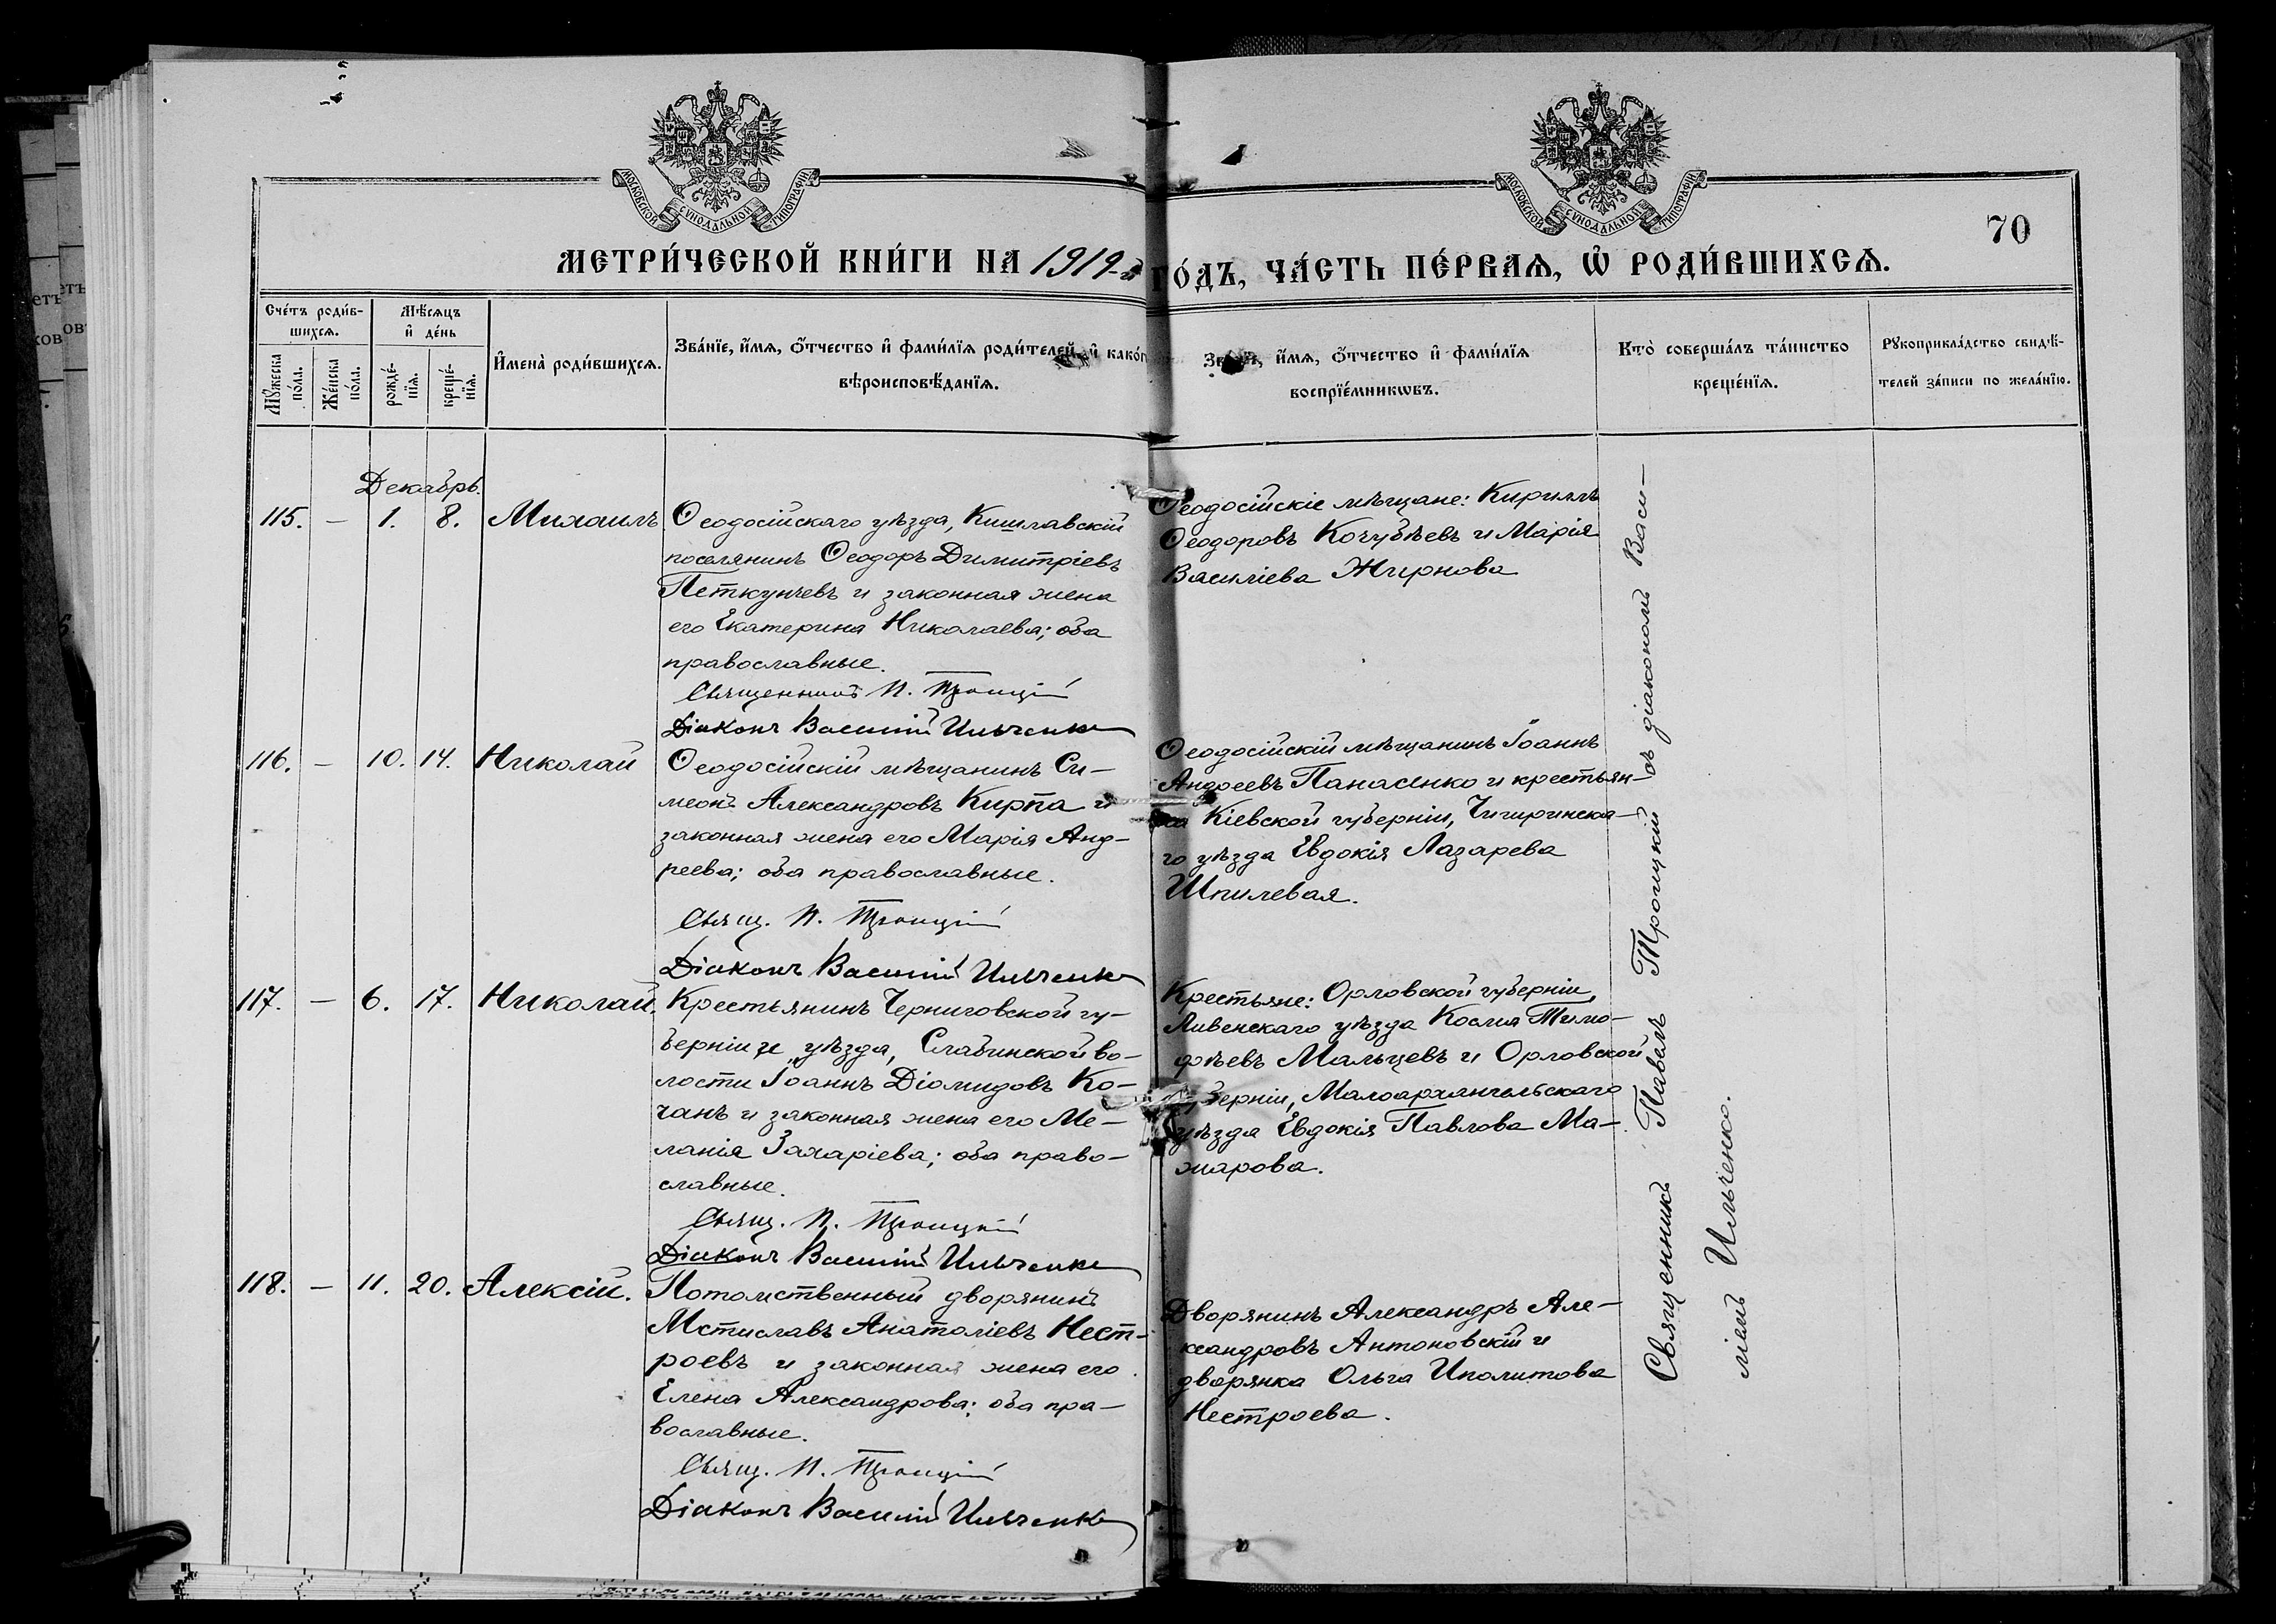 МОСКОВСКОЙ СѴНОДАЛЬНОЙ ТИПОГРАФІИ
МОСКОВСКОЙ СѴНОДАЛЬНОЙ ТИПОГРАФІИ
70
МЕТРИ́ЧЕСКОЙ КНИ́ГИ НА 1919-й ГО́ДЪ, ЧА́СТЬ ПЕ́РВАѦ, Ѡ҆ РОДИ́ВШИХСѦ.
Сче́тъ роди́в-
шихсѧ.
Мѣ́сѧцъ
и҆ де́нь
Мꙋ́жеска
по́ла.
Же́нска
по́ла.
рожде́-
нїѧ.
креще́-
нїѧ.
И҆мена̀ роди́вшихсѧ.
Зва́нїе, и҆́мѧ, ѻ҆́тчество и҆ фами́лїѧ роди́телей, и҆ како́г
вѣроисповѣ́данїѧ.
и҆́мѧ, ѻ҆́тчество и҆ фами́лїѧ
воспрїе́мникѡвъ.
Кто̀ соверша́лъ та́инство
креще́нїѧ.
Рꙋкоприкла́дство свидѣ́-
телей за́писи по жела́нїю.
Декабрь.
115. — 1. 8. Михаилъ
Ѳеодосійскаго уѣзда, Кишлавскій
поселянинъ Ѳеодоръ Димитріевъ
Петкунчевъ и законная жена
его Екатерина Николаева; оба
православные.
Священникъ П. Троицкій
Діаконъ Василій Ильченко
Ѳеодосійскіе мѣщане: Кириллъ
Ѳеодоровъ Кочубѣевъ и Марія
Василіева Жирнова
116. — 10. 14. Николай
Ѳеодосійскій мѣщанинъ Си-
меонъ Александровъ Кирпа и
законная жена его Марія Анд-
реева; оба православные.
Свящ. П. Троицкій
Діаконъ Василій Ильченко
Ѳеодосійскій мѣщанинъ Іоаннъ
Андреевъ Панасенко и крестьян-
ка Кіевской губерніи, Чигиринска-
го уѣзда Евдокія Лазарева
Шпилевая.
117. — 6. 17. Николай.
Крестьянинъ Черниговской гу-
берніи и уѣзда, Слабинской во-
лости Іоаннъ Діомидовъ Ко-
чанъ и законная жена его Ме-
ланія Захаріева; оба право-
славные.
Свящ. П. Троицкій
Діаконъ Василій Ильченко
Крестьяне: Орловской губерніи,
Ливенскаго уѣзда Косма Тимо-
фѣевъ Мальцевъ и Орловской
губерніи, Малоархангельскаго
уѣзда Евдокія Павлова Ма-
жарова.
118. — 11. 20. Алексій.
Потомственный дворянинъ
Мстиславъ Анатоліевъ Нест-
роевъ и законная жена его
Елена Александрова; оба пра-
вославные.
Свящ. П. Троицкій
Діаконъ Василій Ильченко
Дворянинъ Александръ Але-
ксандровъ Антоновскій и
дворянка Ольга Иполитова
Нестроева.
Священникъ Павелъ Троицкій съ діакономъ Васи-
ліемъ Ильченко.